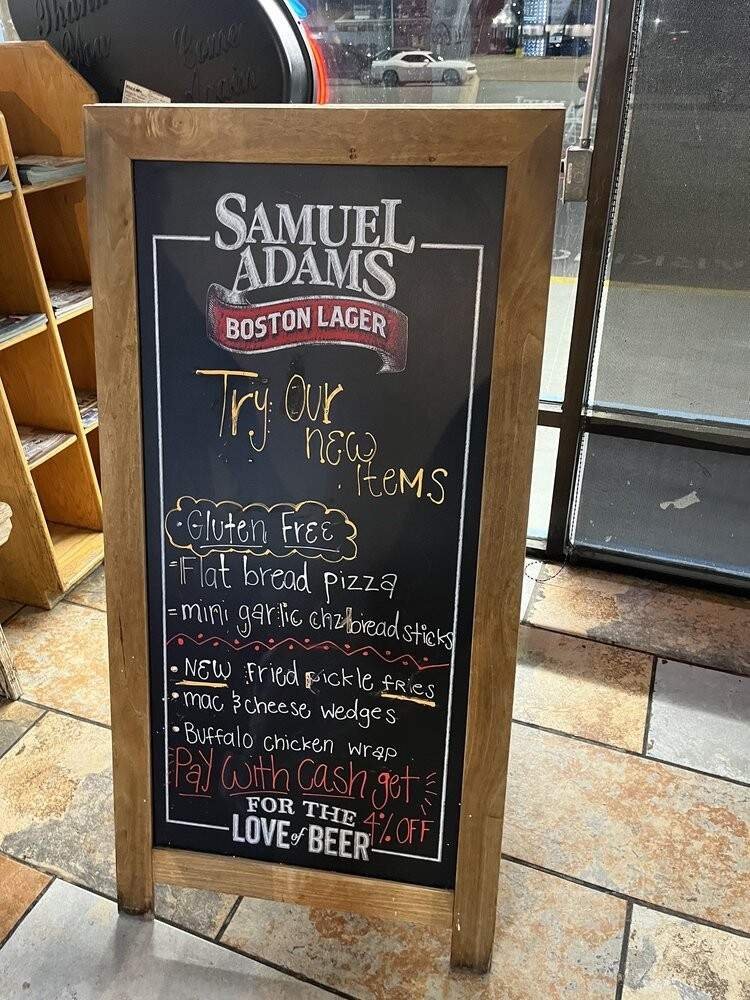 Thank
You
Come
Again
SAMUEL
ADAMS
BOSTON LAGER
Try Our
new
items
· Gluten Free
= Flat bread pizza
= mini garlic chz bread sticks
· NEW Fried pickle fries
· mac & cheese wedges
· Buffalo chicken wrap
Pay with Cash get
4% OFF
FOR THE
LOVE of BEER